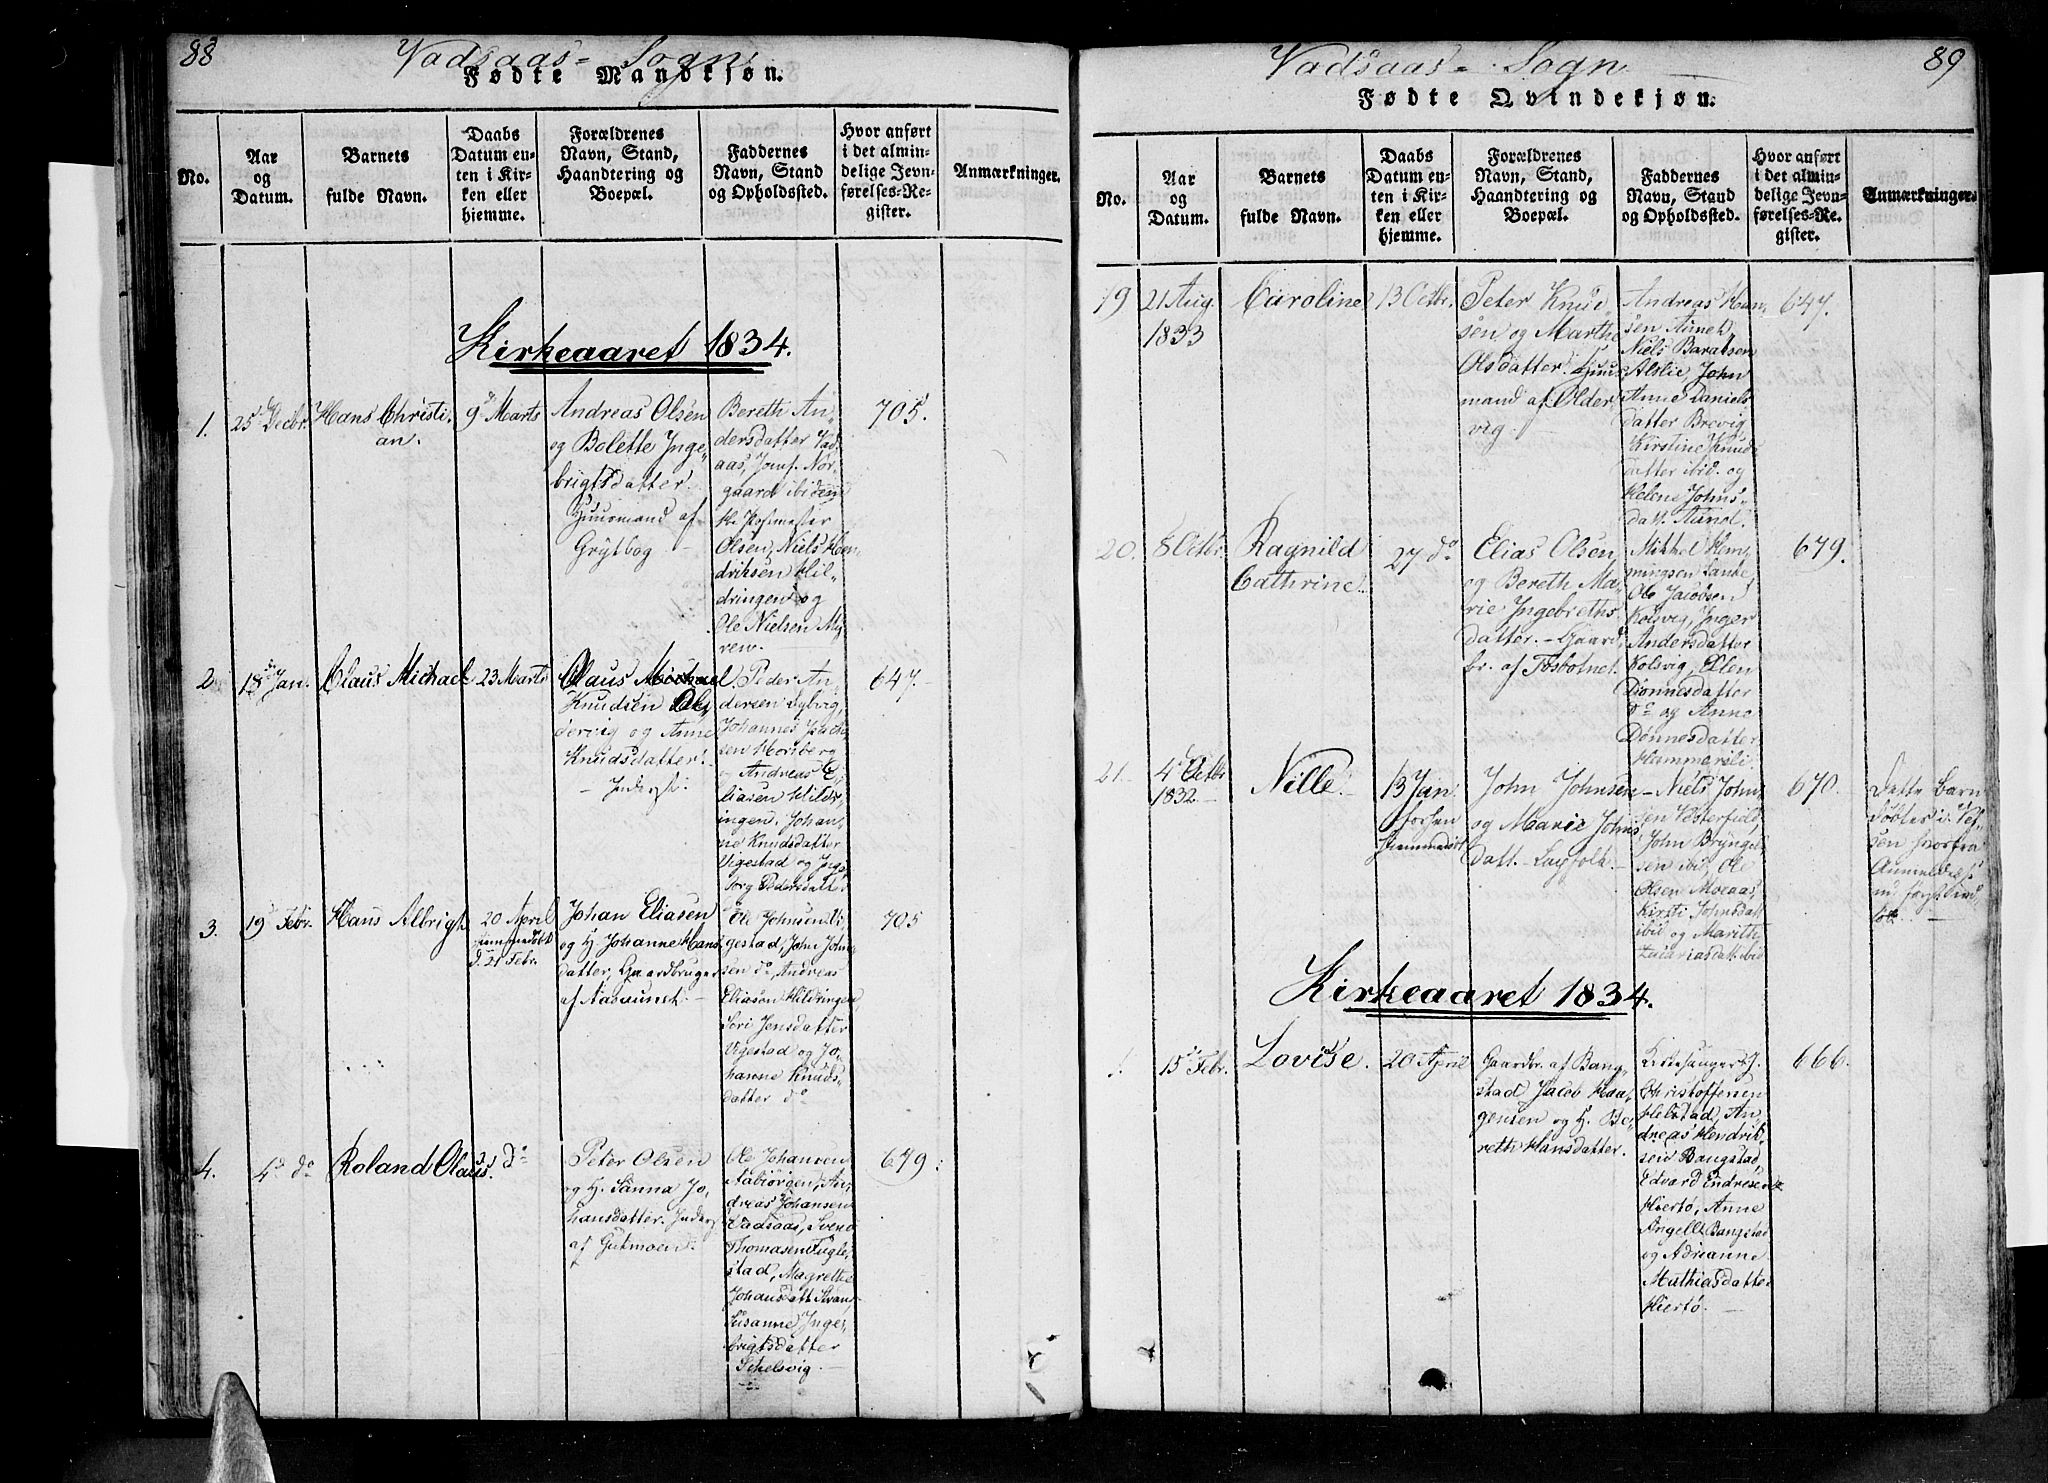 88
Vadsaas Sogn
Fødte Mandkjøn.
No.
Aar
og
Datum.
Barnets
fulde Navn.
Daabs
Datum en-
ten i Kir-
ken eller
hjemme.
Forældrenes
Navn, Stand,
Haandtering og
Boepæl.
Faddernes
Navn, Stand
og Opholdssted.
Hvor anført
i det almin-
delige Jevn-
førelses-Re-
gister.
Anmærkninger.
Kirkeaaret 1834.
1.
25 Decbr.
Hans Christi-
an.
9 Marts
Andreas Olsen
og Bolette Inge-
brigtsdatter.
Huusmand af
Grytbog
Bereth An-
dersdatter Vad-
aas, Jomf. Nor-
gaard ibidem
Hr Postmester
Olsen, Niels Hen-
driksen Hil-
dringen og
Ole Nielsen My-
ren.
705.
2.
18 Jan.
Olaus Michael
23 Marts
Olaus Michael
Knudsen Ol-
dervig og Anne
Knudsdatter.
Inderst.
Peder An-
dersen
Johannes
sen Horsberg
og Andreas E-
liasen Hildr-
ingen. Johan-
ne Knudsdatter
Vigestad og Inge-
borg Pedersdatter
647.
3.
19 Febr.
Hans Albrigt
20 April
hjemmedøbt
d. 21 Febr.
Johan Eliasen
og H. Johanne Hans-
datter, Gaardbruger
af Aasaunet.
Ole Johnsen Vi-
gestad, John John-
sen do, Andreas
Eliasen Hildringen,
Siri Jensdatter
Vigestad og Jo-
hanne Knuds-
datter do
705
4.
4 do
Roland Olaus.
do
Peter Olsen
og H. Sanna Jo-
hansdatter. Inderst
af Gutmoen.
Ole Johansen
Aabiörgen, An-
dreas Johansen
Vadsaas, Svend
Thomasen Fugle-
stad, Magrethe
Johansdatt.
Susanne Inge-
brigtsdatter
Schelsvig.
679.
89
Vadsaas Sogn
Fødte Qvindekjøn.
No.
Aar
og
Datum.
Barnets
fulde Navn.
Daabs
Datum en-
ten i Kir-
ken eller
hjemme.
Forældrenes
Navn, Stand,
Haandtering og
Boepæl.
Faddernes
Navn, Stand
og Opholdssted.
Hvor anført
i det almin-
delige Jevn-
førelses-Re-
gister.
Anmærkninger.
19
21 Aug.
1833
Caroline
13 Octbr.
Peter Knud-
sen og Marthe
Olsdatter. Huus-
mand af Older-
vig.
Andreas Han-
sen Aunet,
Niels
John
Anne Daniels-
datter Brevig
Kirstine Knuds-
datter ibid. og
Helene Johns-
datt. Aunet.
647.
20.
8 Octbr.
Ragnild
Cathrine.
27 do
Elias Olsen
og Bereth Ma-
rie Ingebreths-
datter. Gaard-
br. af Fosbotnet.
Mikkel Hem-
mingsen
Ole Jacobsen
Kolsvig, Inger
Andersdatter
Kolsvig, Ellen
Dønnesdatter
do og Anne
Dønnesdatter
Hammersli.
679.
21.
4 Octbr
1832
Nille.
13 Jan:
forhen
hjemmedøbt
John Johnsen
og Marie Johns-
datt. Layfolk.
Niels John-
sen Vesterfield,
John Bryngel-
sen ibid, Ole
Olsen
Kirsti Johnsdatt
ibid og Marithe
Zacariasdatt. ibid
670.
Dette Barn
døbtes i
1834
1.
15 Febr.
Lovise.
20 April
Gaardbr. af Bang-
stad Jacob Haa-
gensen og H. Be-
reth Hansdatter.
Kirkesanger J.
Christoffersen
Helstad, An-
dreas Hendrik-
sen Bangstad,
Edvard Endresen
Hiertø, Anne
Angell Bangstad
og Adrianne
Mathiasdatter
Hiertø.
666.